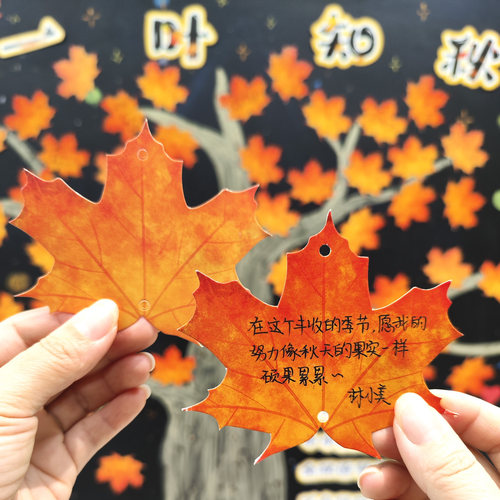 一叶知秋
在这个丰收的季节,愿我的
努力像秋天的果实一样
硕果累累~
林小美